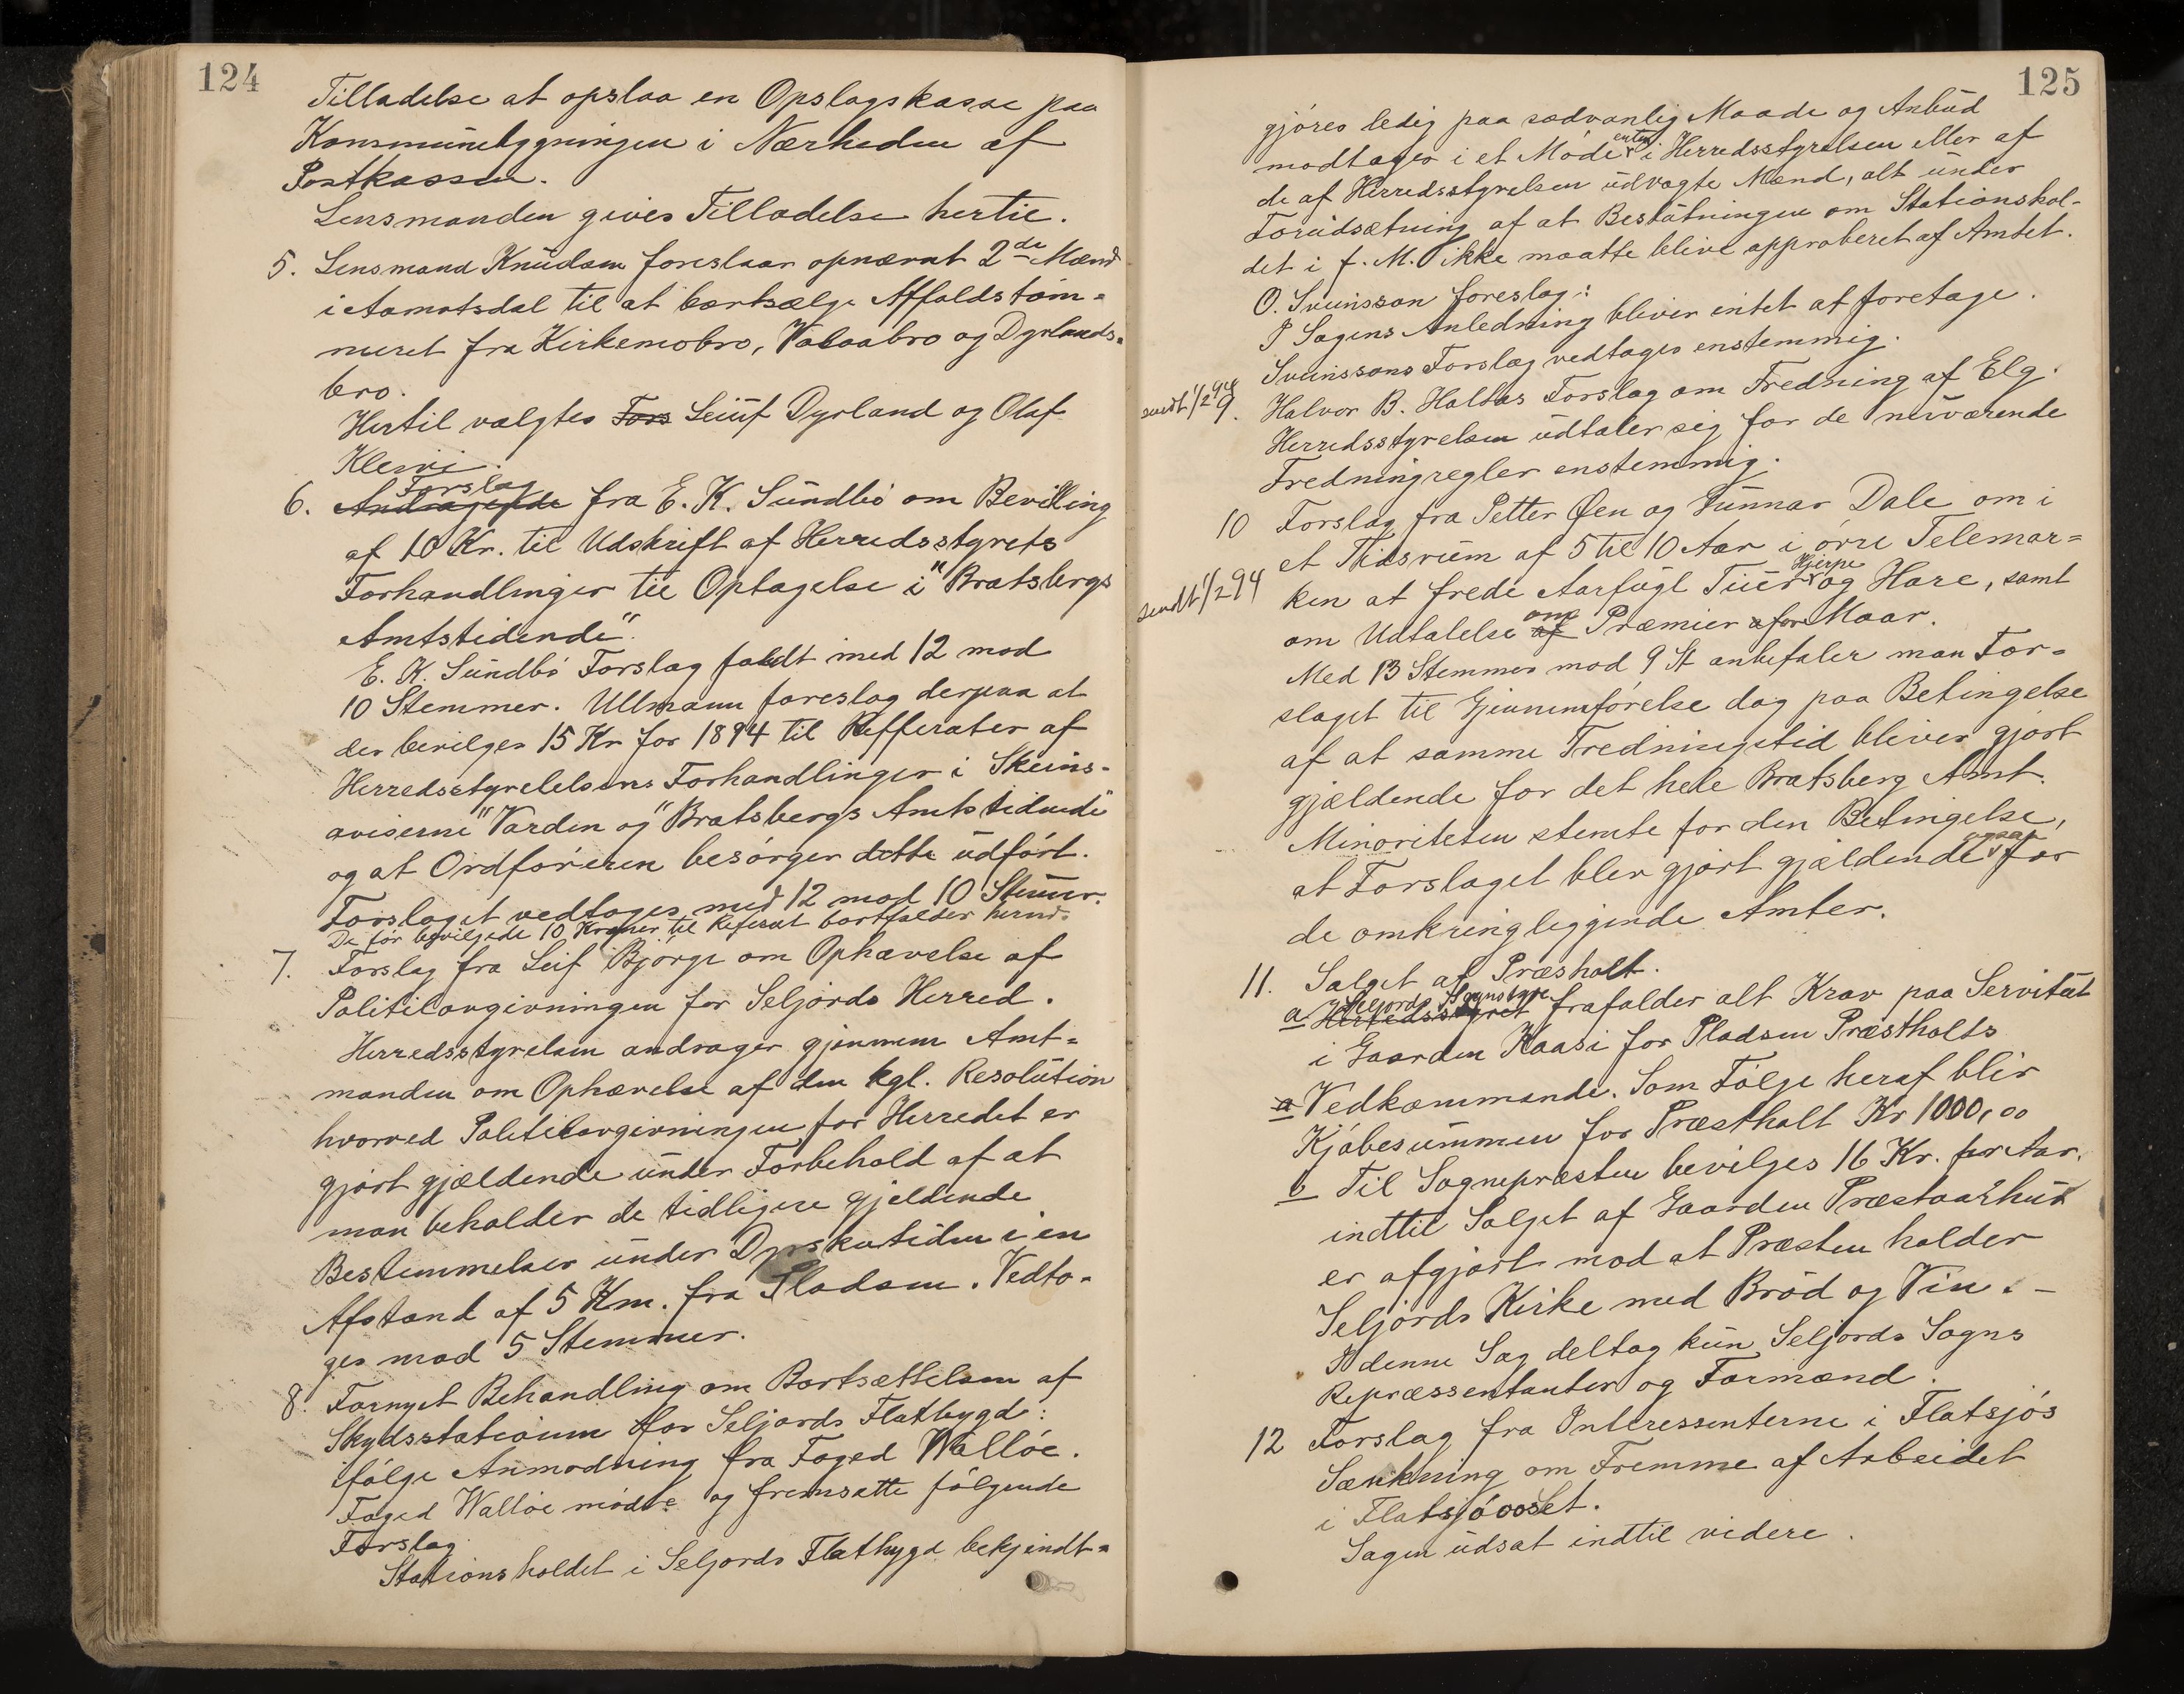 124
Tilladelse at opslaa en Opslagskasse paa
Kommunebygningen i Nærheden af
Postkassen.
Lensmanden gives Tilladelse hertil.
5. Lensmand Knudsen foreslaar opnævnt 2de Mænd
i Aamotsdal til at bortsælge Affaldstøm-
meret fra Kirkemobro, Valaabro og Dyrlands-
bro.
Hertil valgtes Fors Leiuf Dyrland og Olaf
Kleivi.
Forslag
6. Andragende fra E. K. Sundbö om Bevilling
af 10 Kr. til Udskrift af Herredsstyrets
Forhandlinger til Optagelse i "Bratsbergs
Amtstidende".
E. K. Sundbö Forslag faldt med 12 mod
10 Stemmer. Ullmann foreslog derpaa at
der bevilges 15 Kr for 1894 til Refferater af
Herredsstyrelelsens Forhandlinger i Skeins-
aviserne "Varden og "Bratsbergs Amtstidende"
og at Ordföreren besörger dette udfört.
Forslaget vedtages med 12 mod 10 Stemmr.
De för bevilgede 10 Kroner til Referat bortfalder herved.
7. Forslag fra Leif Björge om Ophævelse af
Politilovgivningen for Seljords Herred.
Herredsstyrelsen andrager gjennem Amt-
manden om Ophævelse af den kgl. Resolution
hvorved Politilovgivningen for Herredet er
gjort gjældende under Forbehold af at
man beholder de tidligere gjeldende
Bestemmelser under Dyrskutiden i en
Afstand af 5 Km. fra Pladsen. Vedta-
ges mod 5 Stemmer.
8. Fornyet Behandling om Bortsættelsen af
Skydsstationen for Seljords Flatbygd:
ifölge Anmodning fra Foged Wallöe.
Foged Wallöe mödte og fremsatte fölgende
Forslag
Stationsholdet i Seljords Flatbygd bekjendt-
125
gjöres ledig paa sædvanlig Maade og Anbud
enten
modtages i et Möde i Herredsstyrelsen eller af
de af Herredsstyrelsen udvagte Mænd, alt under
Forudsætning af at Beslutningen om Stationshol-
det i f. M. ikke maatte blive approberet af Amtet.
O. Sveinsson foreslog:
I Sagens Anledning bliver intet at foretage.
Sveinssons Forslag vedtages enstemmig.
sendt 1/2 94
9. Halvor B. Haltas Forslag om Fredning af Elg.
Herredsstyrelsen udtaler sig for de nuværende
Fredningregler enstemmig.
10 Forslag fra Petter Øen og Gunnar Dale om i
et Tidsrum af 5 til 10 Aar i övre Telemar-
Hjerpe
sendt 1/2 94
ken at frede Aarfugl Tiur og Hare, samt
om
om Udtalelse af Præmier for Maar.
Med 13 Stemmer mod 9 St anbefaler man For-
slaget til Gjennemförelse dog paa Betingelse
af at samme Fredningstid bliver gjort
gjældende for det hele Bratsberg Amt.
Minoriteten stemte for den Betingelse,
ogsaa
at Forslaget blev gjort gjældende for
de omkringliggende Amter.
11. Salget af Præsholt.
Seljords Sognstyre
a Herredsstyret frafalder alt Krav paa Servitut
i Gaarden Kaasi for Pladsen Præstholts
a Vedkommende. Som Fölge heraf blir
Kjöbesummen for Præstholt Kr 1000,00
b Til Sognepræsten bevilges 16 Kr. per Aar.
indtil Salget af Gaarden Præstaarhus
er afgjort mod at Præsten holder
Seljords Kirke med Bröd og Vin. -
I denne Sag deltog kun Seljords Sogns
Repræssentanter og Formænd.
12 Forslag fra Interessenterne i Flatsjös
Sænkning om Fremme af Arbeidet
i Flatsjöoset.
Sagen udsat indtil videre.